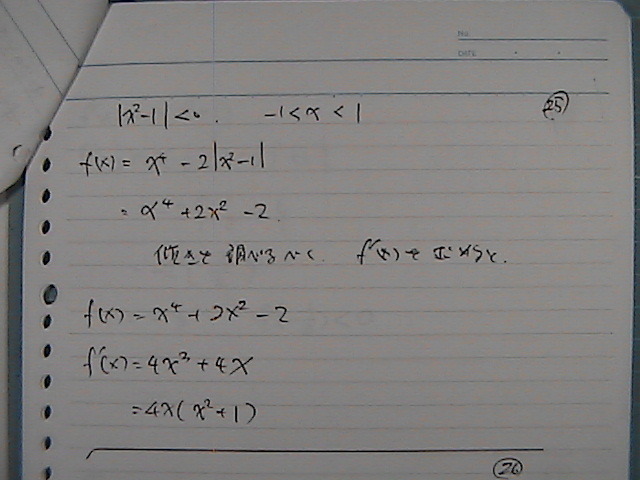 No.
DATE
|x²-1|<0. -1<x<1 ㉕
f(x) = x⁴ - 2|x²-1|
= x⁴ + 2x² - 2.
傾きを調べるべく、f'(x)を求めると、
f(x) = x⁴ + 2x² - 2
f'(x) = 4x³ + 4x
= 4x(x²+1)
㉖